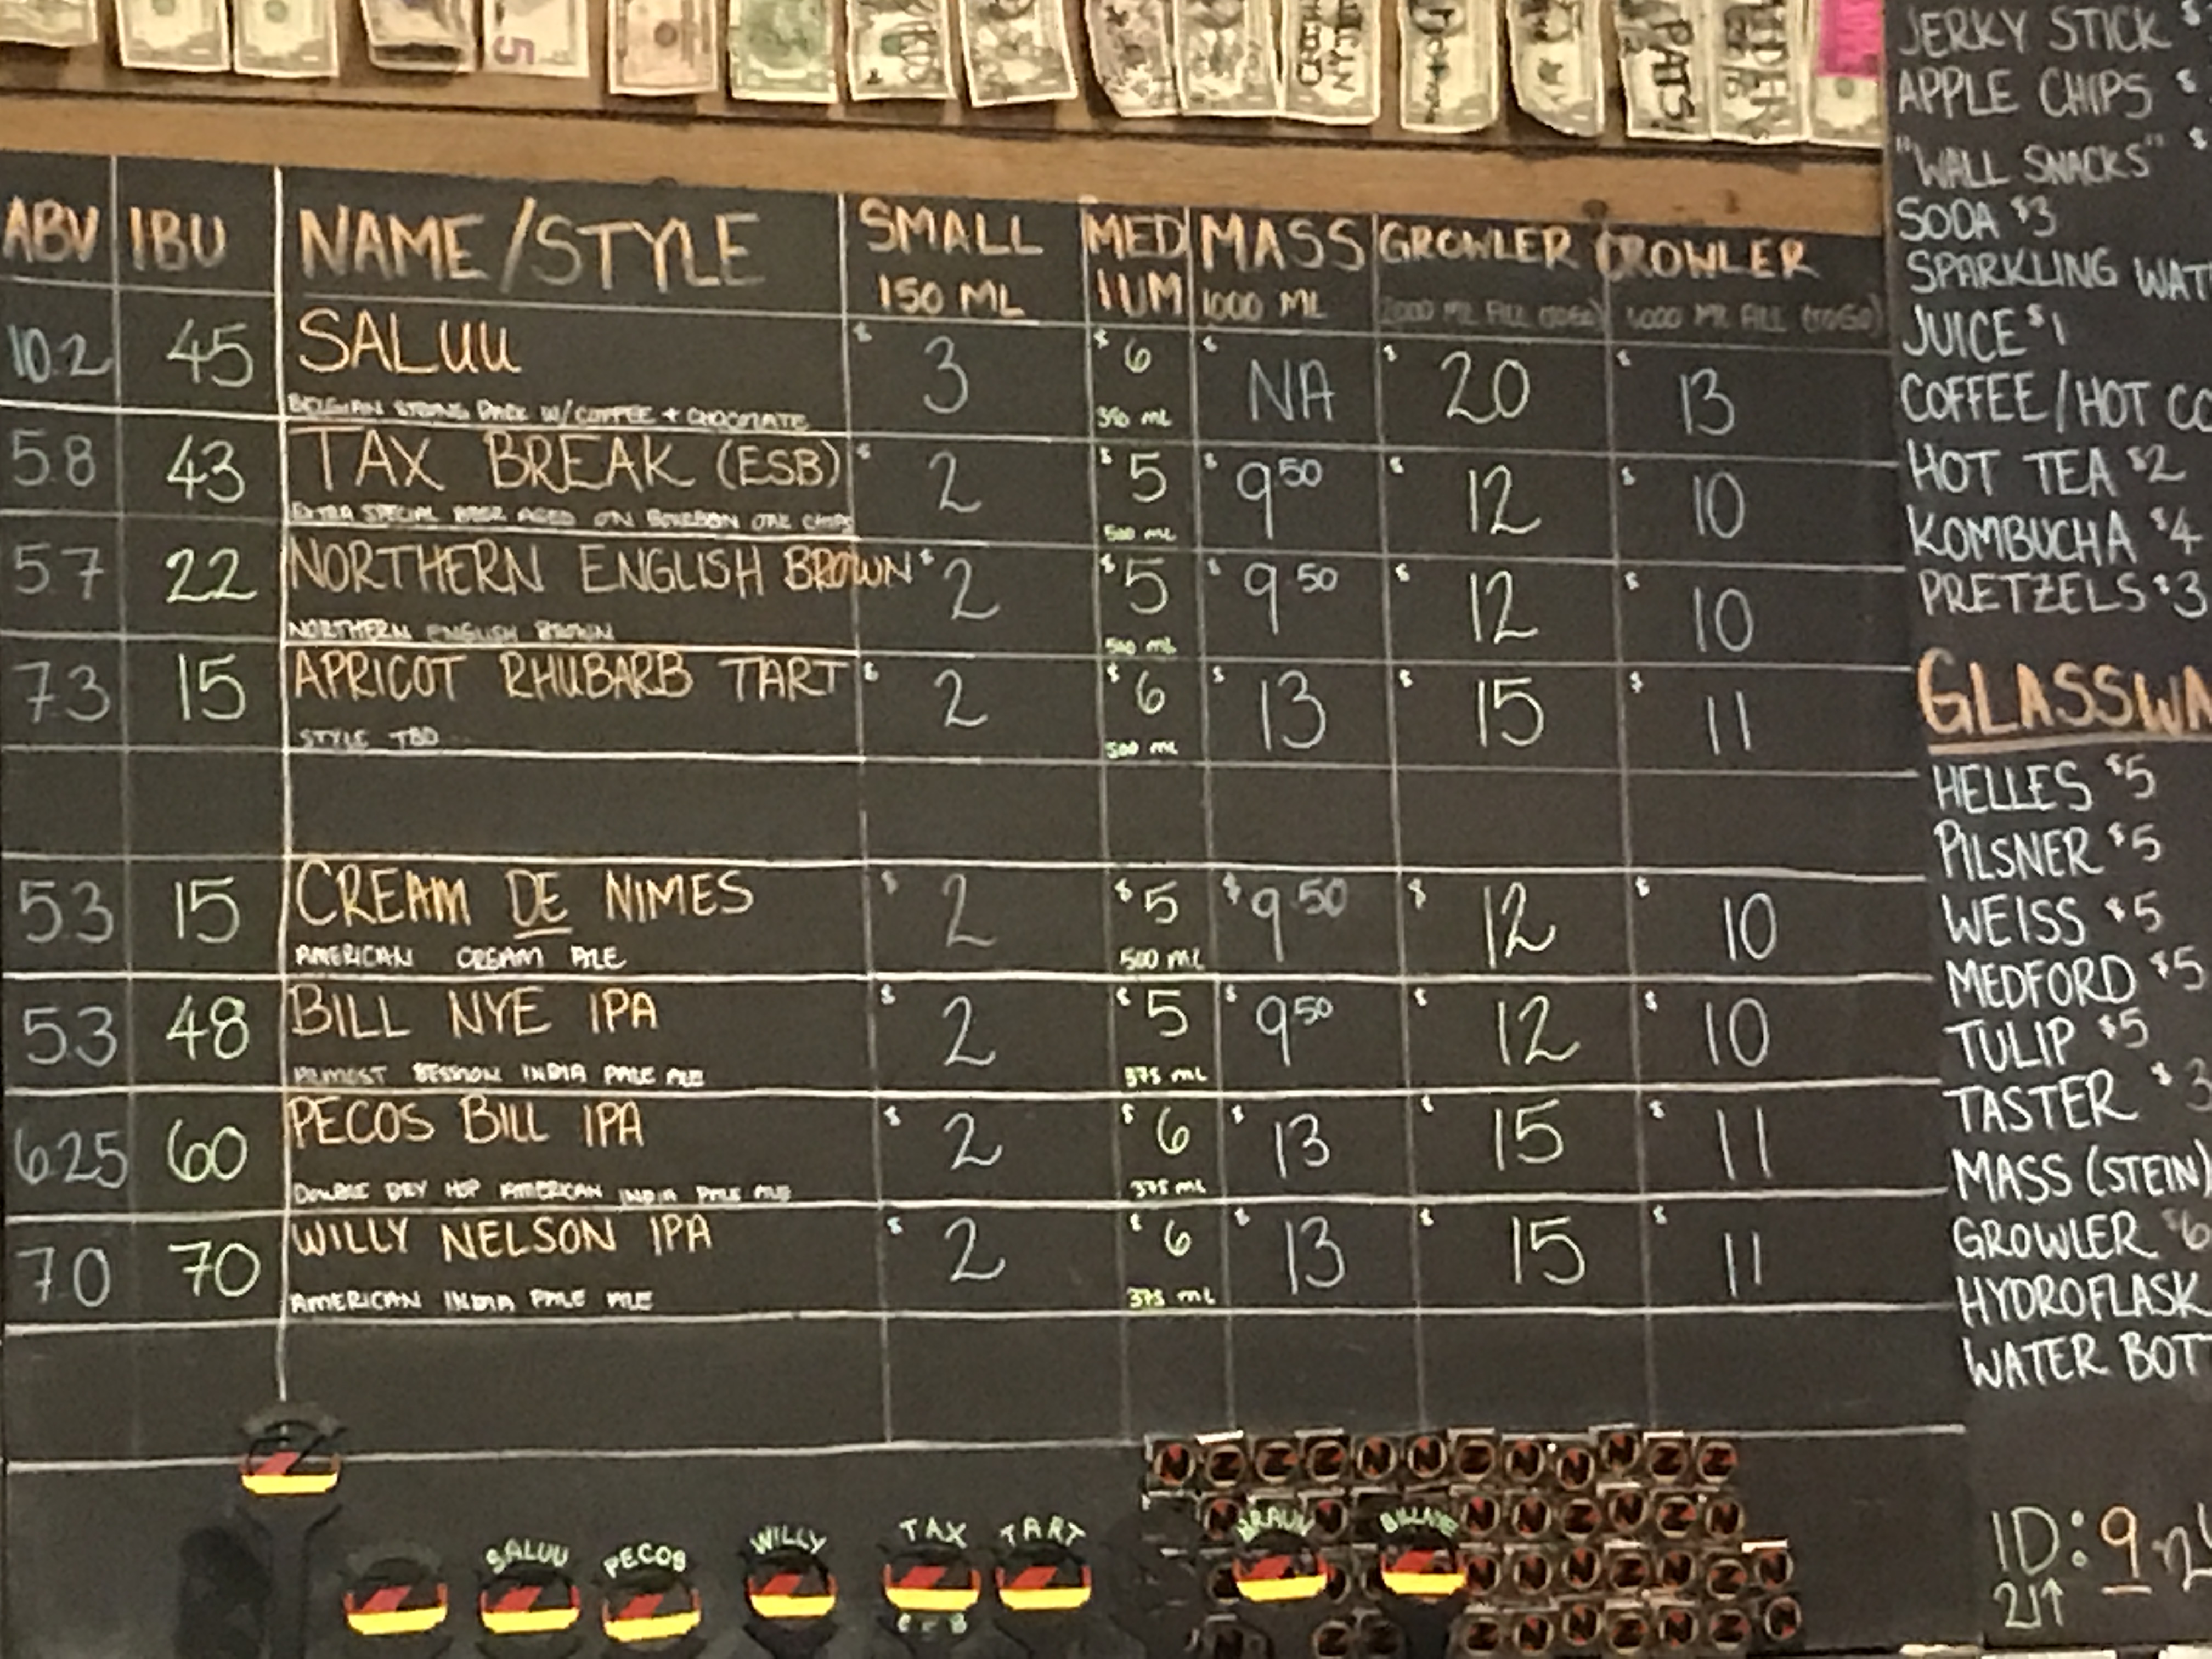 ABV IBU NAME/STYLE SMALL 150 ML MEDIUM MASS 1000 ML GROWLER 2000 ML FILL (TOGO) CROWLER 1000 ML FILL (TOGO)
10.2 45 SALUU $ 3 $ 6 $ NA $ 20 $ 13
BELGIAN STRONG DARK W/COFFEE + CHOCOLATE ML
5.8 43 TAX BREAK (ESB) $ 2 $ 5 $ 9 50 $ 12 $ 10
EXTRA SPECIAL BEER AGED ON BOURBON OAK CHIPS 500 ML
5.7 22 NORTHERN ENGLISH BROWN $ 2 $ 5 $ 9 50 $ 12 $ 10
NORTHERN ENGLISH BROWN 500 ML
7.3 15 APRICOT RHUBARB TART $ 2 $ 6 $ 13 $ 15 $ 11
STYLE TBD 500 ML
5.3 15 CREAM DE NIMES $ 2 $ 5 $ 9.50 $ 12 $ 10
AMERICAN CREAM ALE 500 ML
5.3 48 BILL NYE IPA $ 2 $ 5 $ 9 50 $ 12 $ 10
ALMOST SESSION INDIA PALE ALE 375 ML
6.25 60 PECOS BILL IPA $ 2 $ 6 $ 13 $ 15 $ 11
DOUBLE DRY HOP AMERICAN INDIA PALE ALE 375 ML
7.0 70 WILLY NELSON IPA $ 2 $ 6 $ 13 $ 15 $ 11
AMERICAN INDIA PALE ALE 375 ML
SALUU
PECOS
WILLY
TAX
TART
BRAUN
BILL NYE
JERKY STICK $
APPLE CHIPS $
"WALL SNACKS" $
SODA $3
SPARKLING
JUICE $1
COFFEE/HOT
HOT TEA $2
KOMBUCHA $4
PRETZELS $3
HELLES $5
PILSNER $5
WEISS $5
MEDFORD $5
TULIP $5
TASTER $3
MASS (STEIN)
GROWLER $6
HYDROFLASK
WATER
ID: 9
21↑
5
PATS!